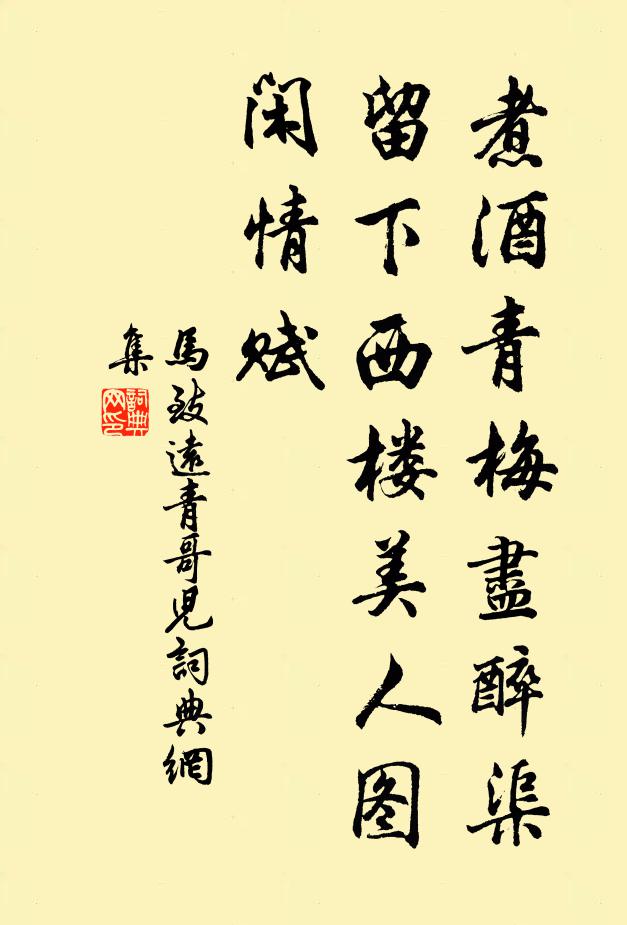 煮酒青梅盡醉渠
留下西楼美人图
閑情賦
馬致遠青哥児詞典網
集
詞典
网印